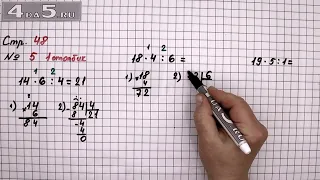 4DA5.RU
Стр. 48
№ 5 1 столбик
1 2
14 · 6 : 4 = 21
1) 14
6
84
2) 84 4
8 21
4
4
0
1 2
18 · 4 : 6 =
1) 18
4
72
2)
19 · 5 : 1 =